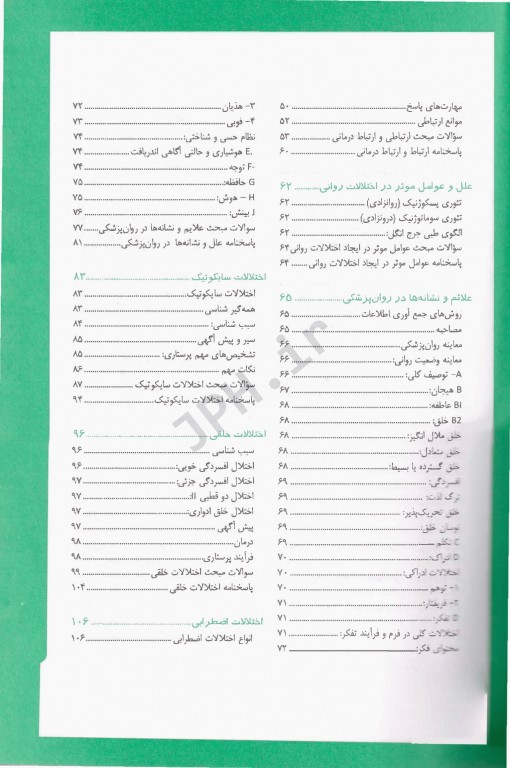 مهارت‌های پاسخ ۵۰
موانع ارتباطی ۵۲
سؤالات مبحث ارتباطی و ارتباط درمانی ۵۳
پاسخنامه ارتباط و ارتباط درمانی ۶۰
علل و عوامل موثر در اختلالات روانی ۶۲
تئوری پسکوژنیک (روانزادی) ۶۲
تئوری سوماتوژنیک (درونزادی) ۶۲
الگوی طبی جرج انگل: ۶۲
سؤالات مبحث عوامل موثر در ایجاد اختلالات روانی ۶۴
پاسخنامه عوامل موثر در ایجاد اختلالات روانی ۶۴
علائم و نشانه‌ها در روان‌پزشکی ۶۵
روش‌های جمع آوری اطلاعات ۶۵
مصاحبه ۶۵
معاینه روان‌پزشکی ۶۶
معاینه وضعیت روانی: ۶۶
A- توصیف کلی: ۶۶
B هیجان: ۶۷
B1 عاطفه: ۶۸
B2 خلق: ۶۸
خلق ملال انگیز: ۶۸
خلق متعادل: ۶۸
خلق گسترده یا بسیط: ۶۸
افسردگی: ۶۹
ترک لذت: ۶۹
خلق تحریک‌پذیر: ۶۹
نوسان خلق: ۶۹
C تکلم ۶۹
D ادراک: ۷۰
اختلالات ادراکی: ۷۰
۱- توهم ۷۰
۲- فریفتار: ۷۱
D تفکر: ۷۱
اختلالات کلی در فرم و فرآیند تفکر: ۷۱
محتوای فکر: ۷۲
۳- هذیان ۷۲
۴- فوبی ۷۳
نظام حسی و شناختی: ۷۴
E. هوشیاری و حالتی آگاهی اندریافت ۷۴
F- توجه ۷۴
G حافظه: ۷۵
H – هوش: ۷۵
J بینش: ۷۶
سوالات مبحث علایم و نشانه‌ها در روان‌پزشکی ۷۷
پاسخنامه علل و نشانه‌ها در روان‌پزشکی ۸۱
اختلالات سایکوتیک ۸۳
اختلالات سایکوتیک ۸۳
همه‌گیر شناسی ۸۳
سبب شناسی: ۸۴
سیر و پیش آگهی ۸۵
تشخیص‌های مهم پرستاری: ۸۵
نکات مهم ۸۶
سؤالات مبحث اختلالات سایکوتیک ۸۷
پاسخنامه اختلالات سایکوتیک ۹۴
اختلالات خلقی ۹۶
سبب شناسی ۹۶
اختلال افسردگی خویی: ۹۶
اختلال افسردگی جزئی: ۹۷
اختلال دو قطبی II: ۹۷
اختلال خلق ادواری: ۹۷
پیش آگهی ۹۷
درمان ۹۸
فرآیند پرستاری: ۹۸
سوالات مبحث اختلالات خلقی ۹۹
پاسخنامه اختلالات خلقی ۱۰۴
اختلالات اضطرابی ۱۰۶
انواع اختلالات اضطرابی ۱۰۶
JPH.ir